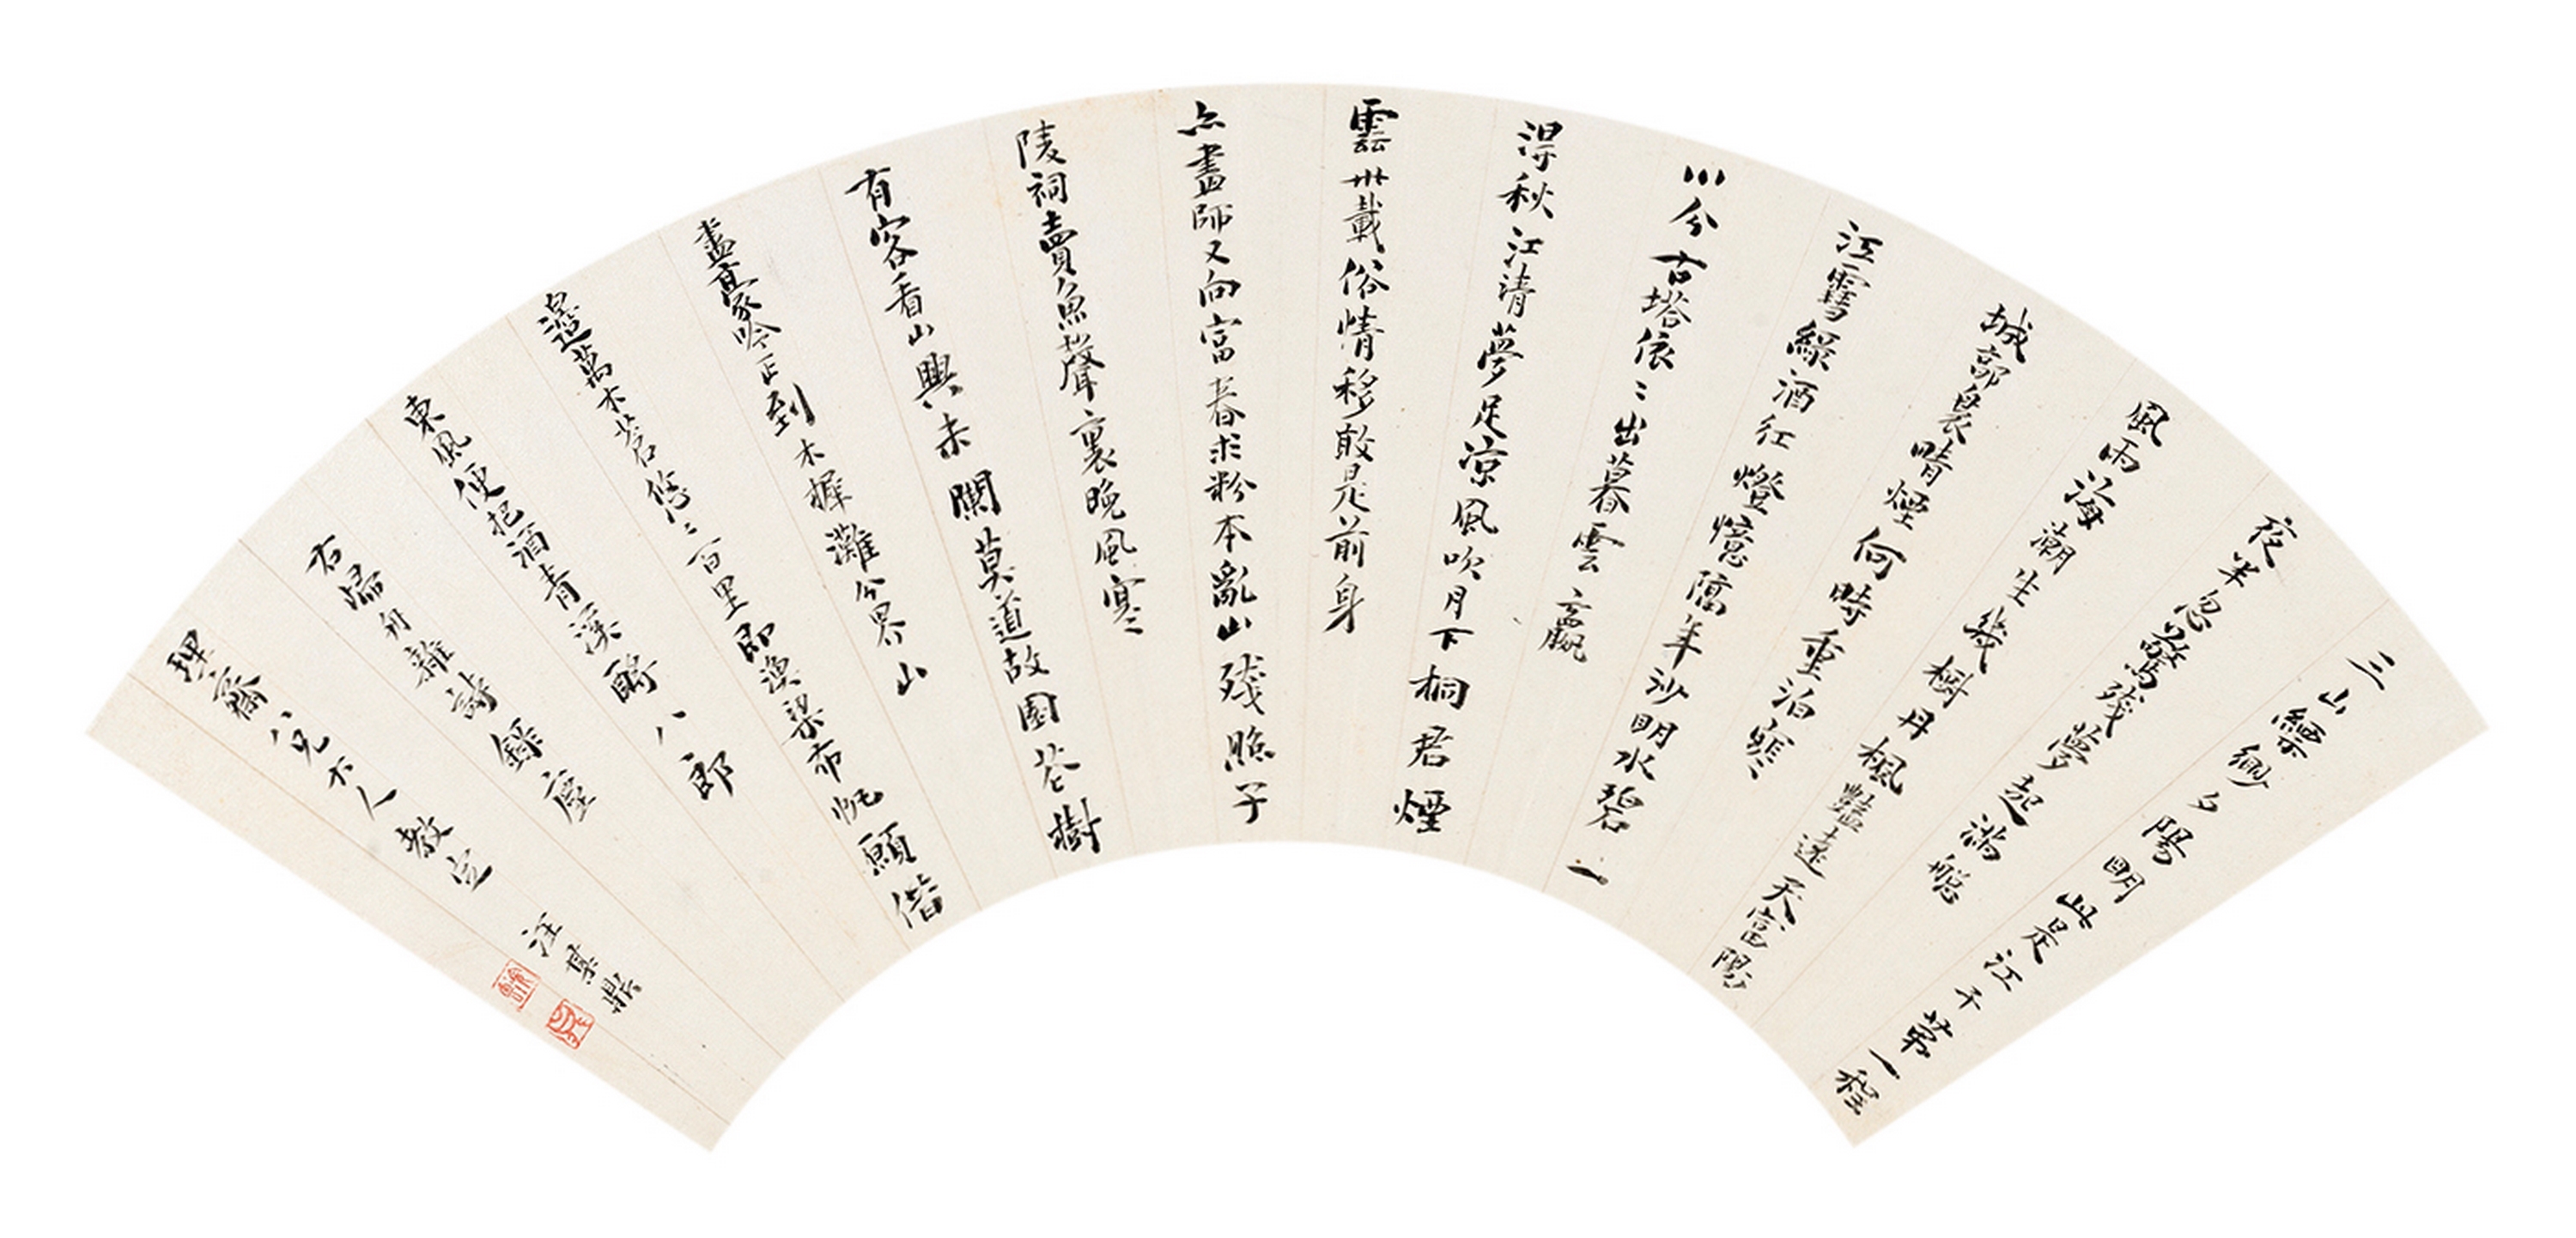 三山縹緲夕陽明此是江干第一程
夜半忽驚殘夢起滿艙
風雨海潮生幾樹丹楓豔遠天富陽
城郭晨晴煙何時重泊寒
江雪綠酒紅燈憶隔年沙明水碧一
川分古塔依〻出暮雲贏
得秋江清夢足涼風吹月下桐君煙
雲卅載俗情移敢是前身
点畫師又向富春求粉本亂山殘照子
陵祠賣魚聲裏晚風寒
有客看山興未闌莫道故園花樹
盡豪吟正到木樨灘分界山
邊萬木蒼悠〻百里即漁梁布帆願借
東風便把酒青溪酹八郎
右歸舟雜詩錄塵
理齋八兄大人教定 汪嘉鼎